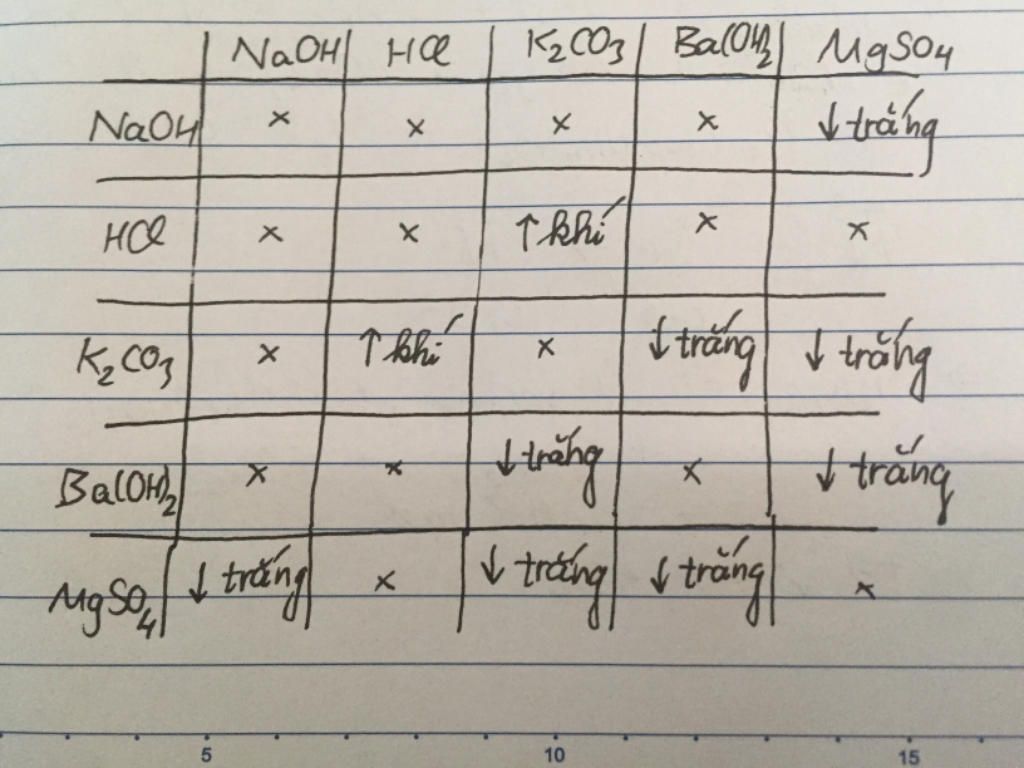 NaOH HCl K2CO3 Ba(OH)2 MgSO4
NaOH × × × × ↓ trắng
HCl × × ↑ khí × ×
K2CO3 × ↑ khí × ↓ trắng ↓ trắng
Ba(OH)2 × × ↓ trắng × ↓ trắng
MgSO4 ↓ trắng × ↓ trắng ↓ trắng ×
5 10 15